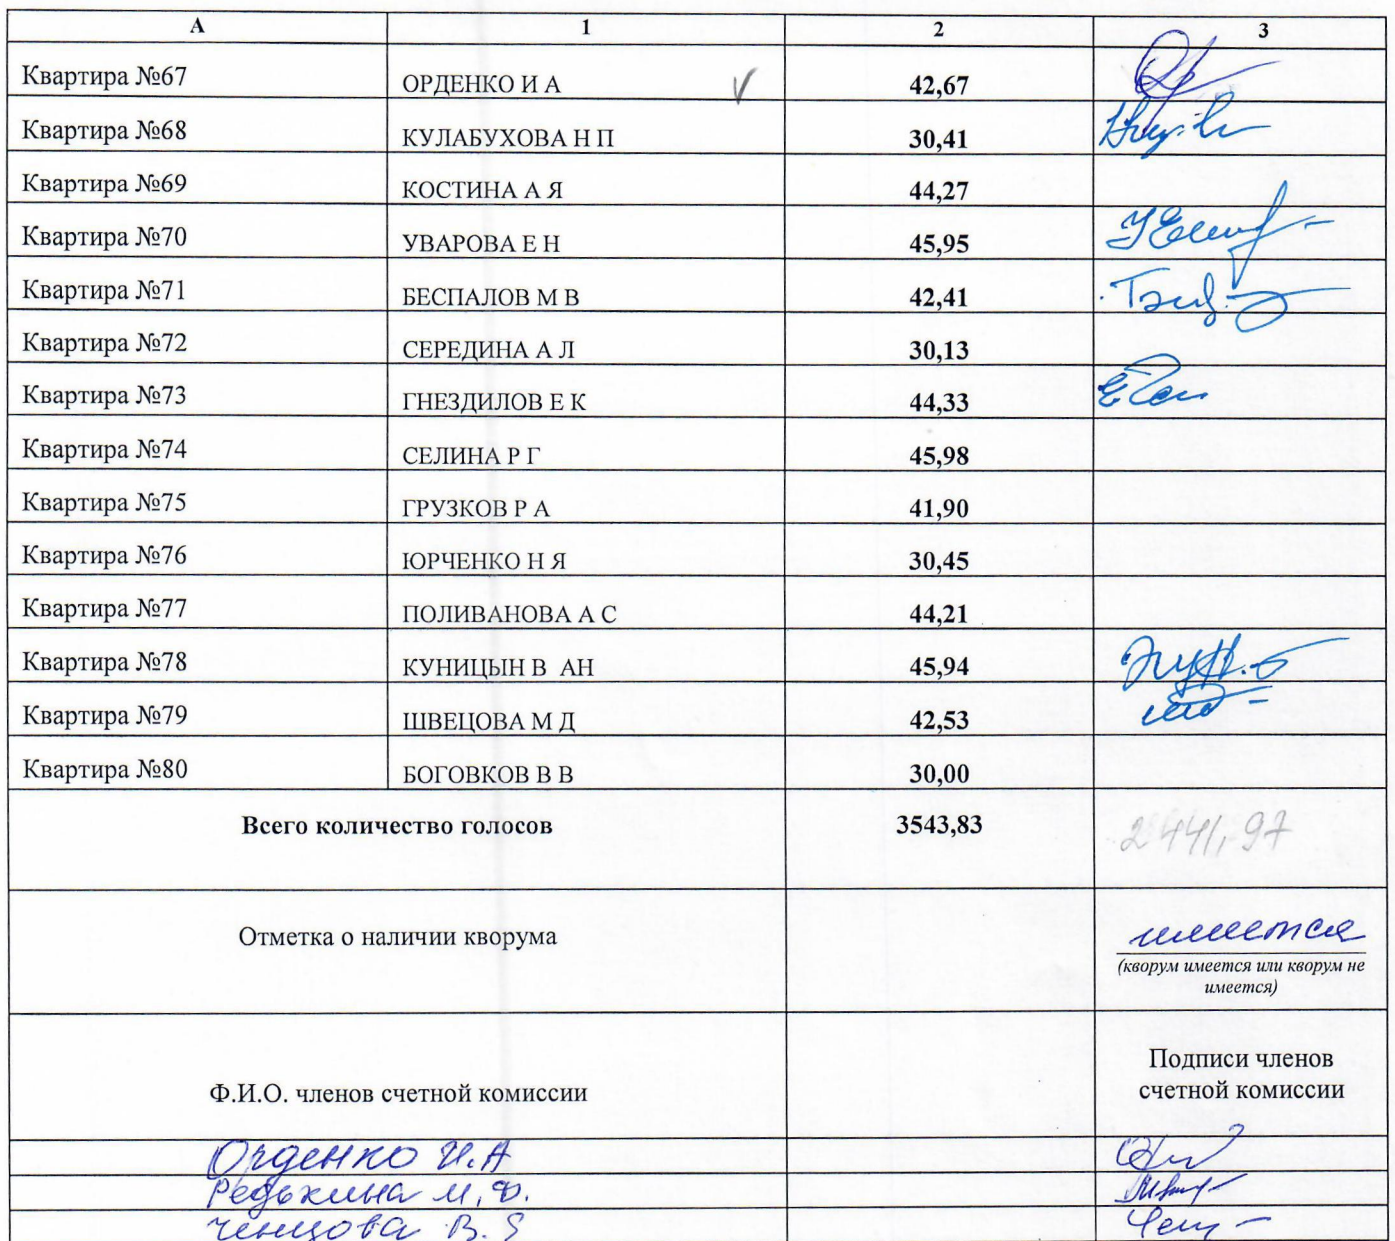 А 1 2 3
Квартира №67 ОРДЕНКО И А 42,67
Квартира №68 КУЛАБУХОВА Н П 30,41
Квартира №69 КОСТИНА А Я 44,27
Квартира №70 УВАРОВА Е Н 45,95
Квартира №71 БЕСПАЛОВ М В 42,41
Квартира №72 СЕРЕДИНА А Л 30,13
Квартира №73 ГНЕЗДИЛОВ Е К 44,33
Квартира №74 СЕЛИНА Р Г 45,98
Квартира №75 ГРУЗКОВ Р А 41,90
Квартира №76 ЮРЧЕНКО Н Я 30,45
Квартира №77 ПОЛИВАНОВА А С 44,21
Квартира №78 КУНИЦЫН В АН 45,94
Квартира №79 ШВЕЦОВА М Д 42,53
Квартира №80 БОГОВКОВ В В 30,00
Всего количество голосов 3543,83 2441,97
Отметка о наличии кворума имеется
(кворум имеется или кворум не
имеется)
Подписи членов
Ф.И.О. членов счетной комиссии счетной комиссии
Орденко И.А
Редькина М.Ф.
Ченцова В.